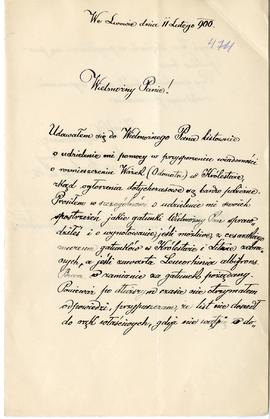 We Lwowie dnia 11 Lutego 900.
474
Wielmożny Panie!
Udawałem się do Wielmożnego Pana listownie
o udzielenie mi pomocy w przyczynieniu wiadomości
o rozmieszczeniu Ważek (Odonata) w Królestwie,
skąd ogłoszenia dotychczasowe są bardzo
Prosiłem w szczególności o udzielenie mi swoich
spostrzeżeń jakie gatunki Wielmożny Pan
działeś i o jeśli możliwa, z
gatunków w Królestwie i
nych, a jeśli Leucorrhinia albifrons
w zamianie za gatunki
Ponieważ po dłuższym czasie nie otrzymałem
odpowiedzi, przypuszczam, że list nie doszedł
do rąk właściwych, gdyż nie wątpię o do-